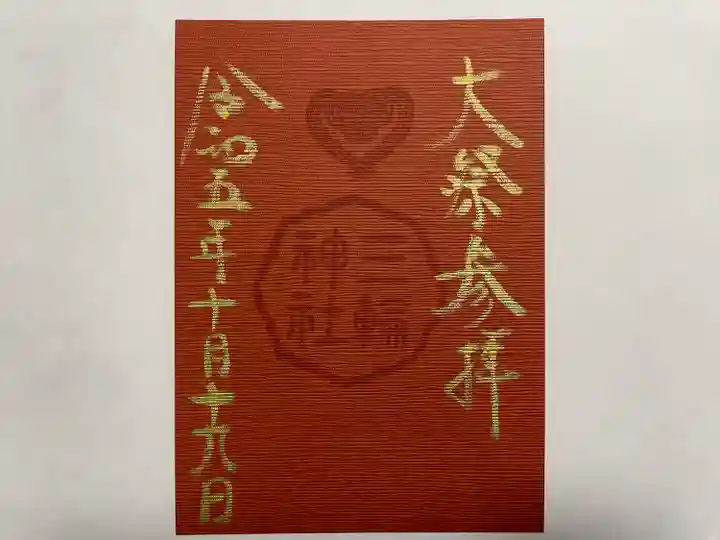 大祭参拝
神社
令和五年十月十六日